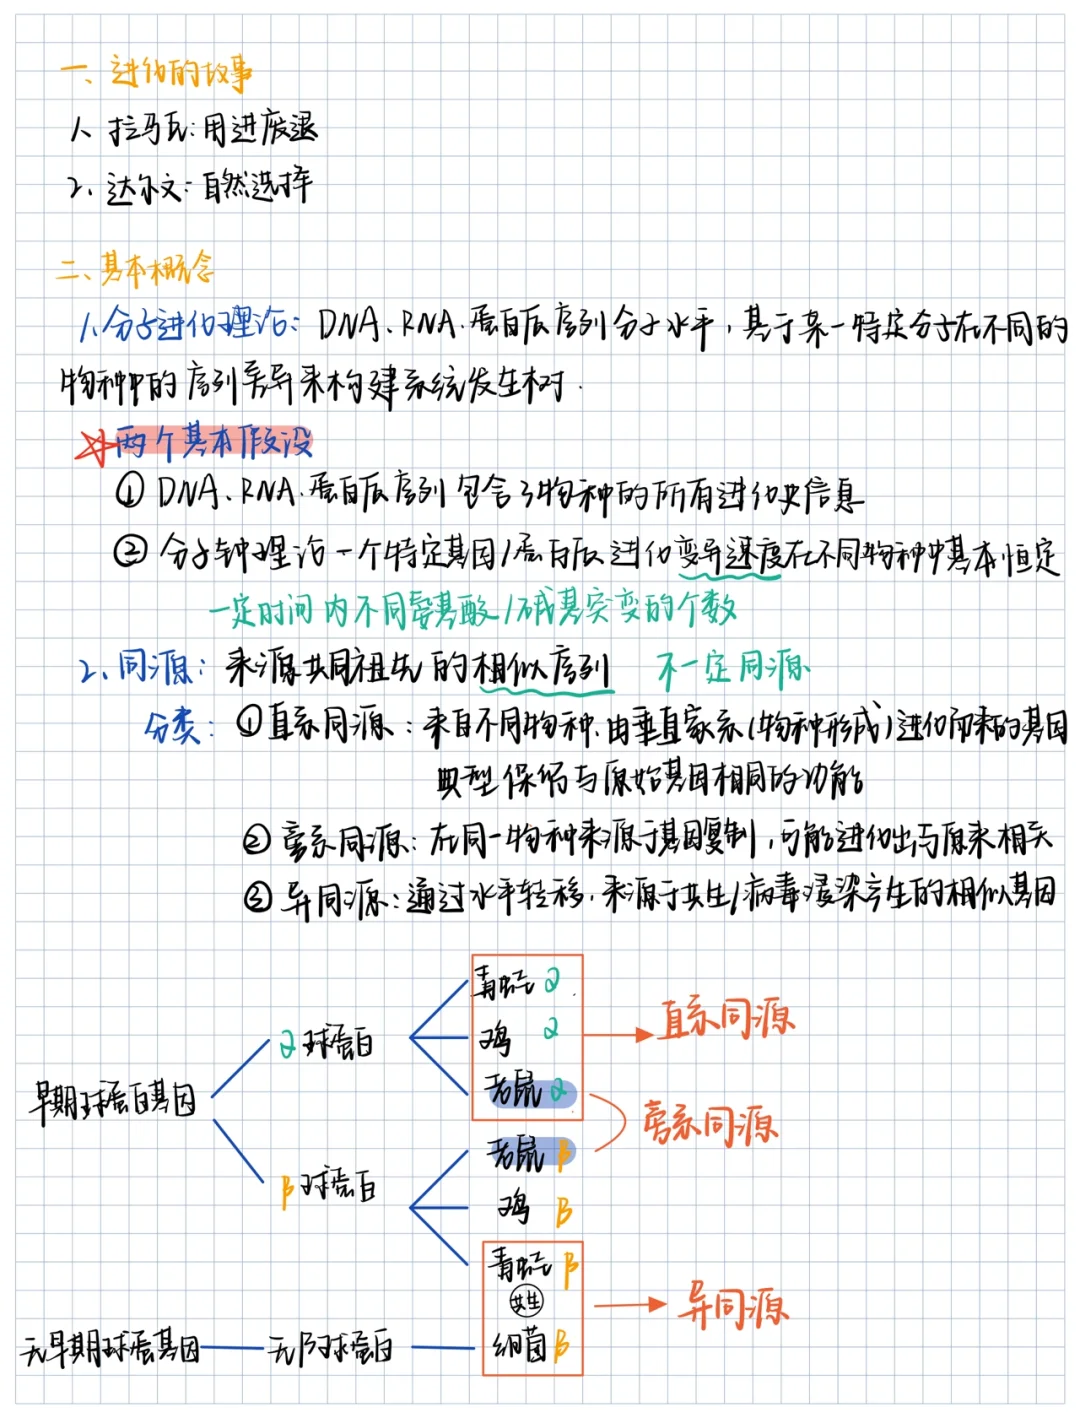 一、进化的故事
1、拉马克:用进废退
2、达尔文:自然选择
二、基本概念
1、分子进化理论:DNA、RNA、蛋白质序列分子水平,基于某一特定分子在不同的
物种中的序列差异来构建系统发生树.
☆两个基本假设
① DNA、RNA、蛋白质序列包含了物种的所有进化史信息
② 分子钟理论一个特定基因/蛋白质进化变异速度在不同物种中基本恒定
一定时间内不同氨基酸/碱基突变的个数
2、同源:来源共同祖先的相似序列 不一定同源
分类:①直系同源:来自不同物种、由垂直家系(物种形成)进化而来的基因
典型保留与原始基因相同的功能
② 旁系同源:在同一物种来源于基因复制,可能进化出与原来相关
③ 异同源:通过水平转移,来源于共生/病毒侵染产生的相似基因
青蛙 α
鸡 α
直系同源
α球蛋白
老鼠 α
早期球蛋白基因
旁系同源
老鼠 β
β球蛋白
鸡 β
青蛙 β
共生
异同源
无早期球蛋基因
无β球蛋白
细菌 β